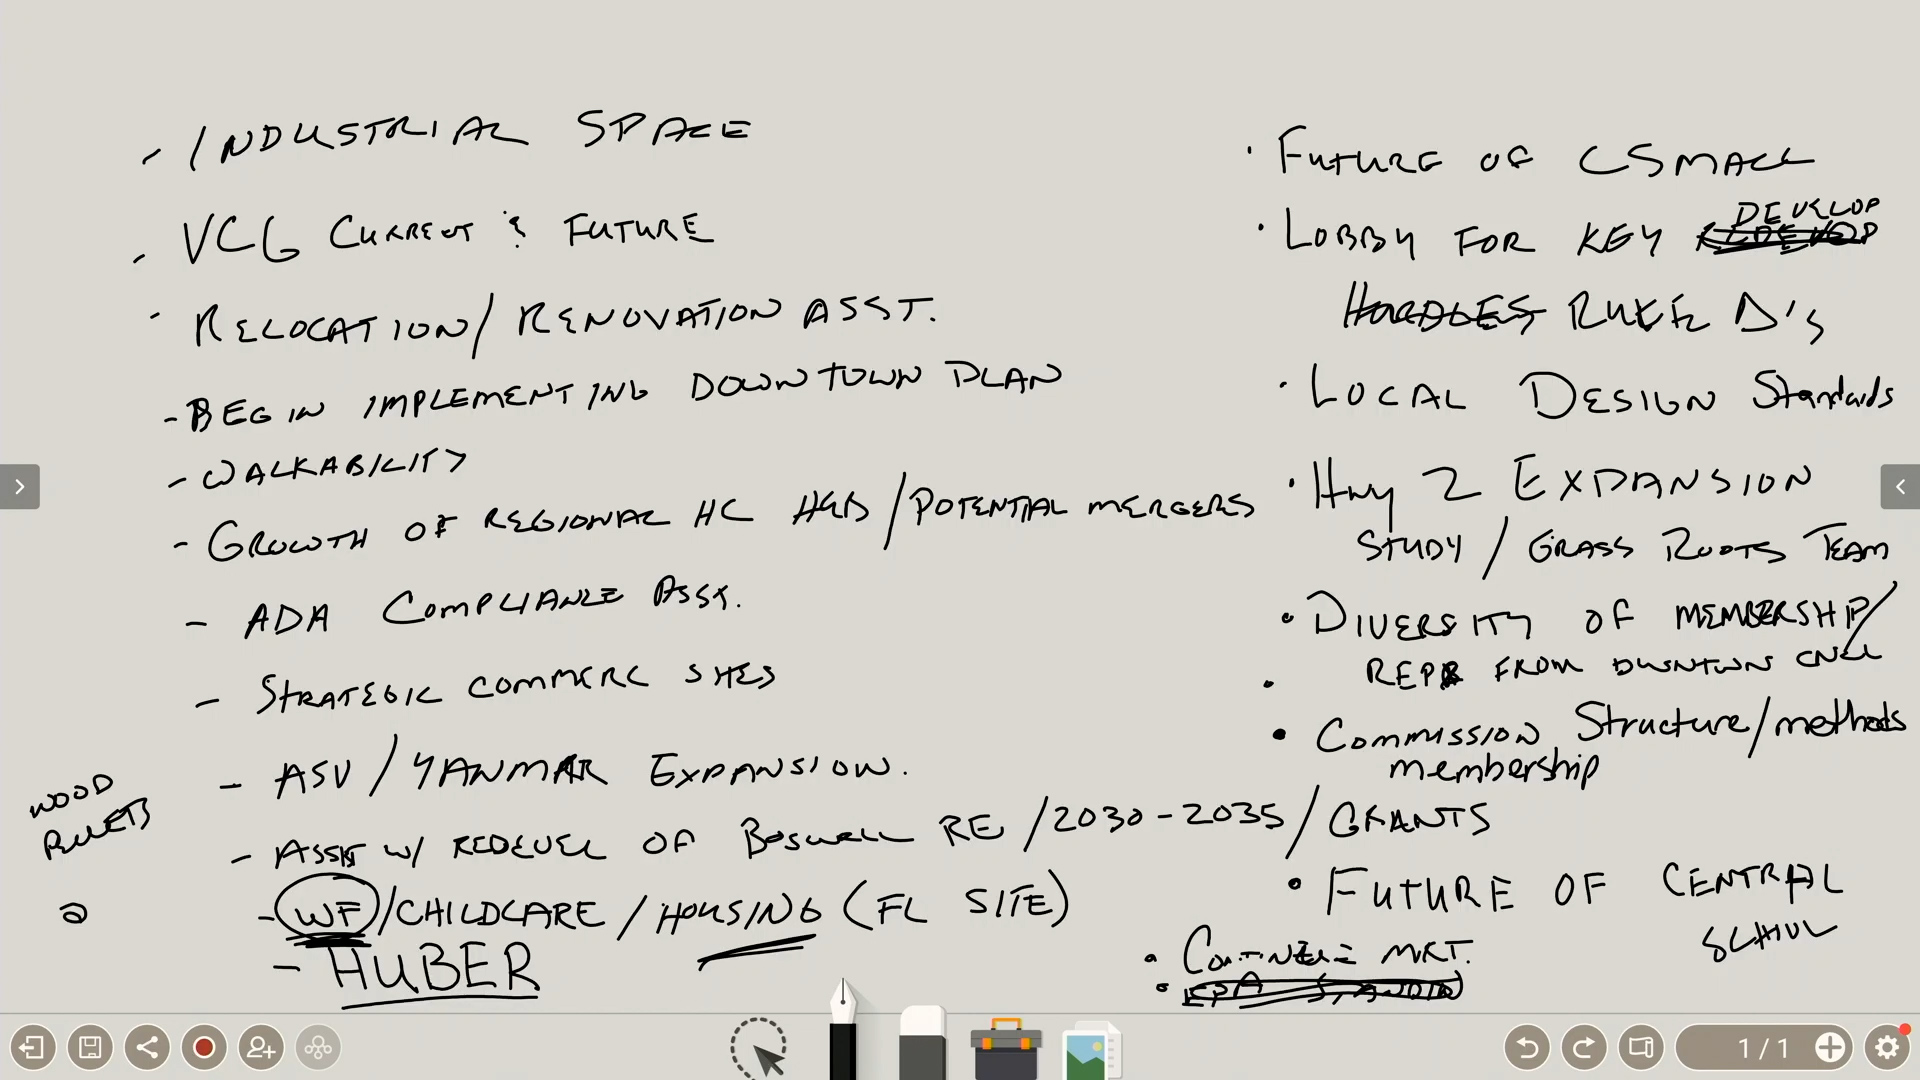 - INDUSTRIAL SPACE
- VCG CURRENT & FUTURE
- RELOCATION/RENOVATION ASST.
- BEGIN IMPLEMENTING DOWNTOWN PLAN
- WALKABILITY
- GROWTH OF REGIONAL HC HUB/POTENTIAL MERGERS
- ADA COMPLIANCE ASST.
- STRATEGIC COMMERC SITES
- ASV/YANMAR EXPANSION.
- ASSIST W/ REDEVEL OF BOSWELL RE/2030-2035/GRANTS
- WF/CHILDCARE/HOUSING (FL SITE)
- HUBER
WOOD
PELLETS
• FUTURE OF CSMALL
• LOBBY FOR KEY DEVELOP
HURDLES
• LOCAL DESIGN Standards
• Hwy 2 EXPANSION
STUDY/GRASS ROOTS TEAM
• DIVERSITY OF MEMBERSHIP/
REP FROM DWNTWN CNCL
• Commission Structure/methods
membership
• FUTURE OF CENTRAL
SCHOOL
• CONTINUE MKT.
1/1